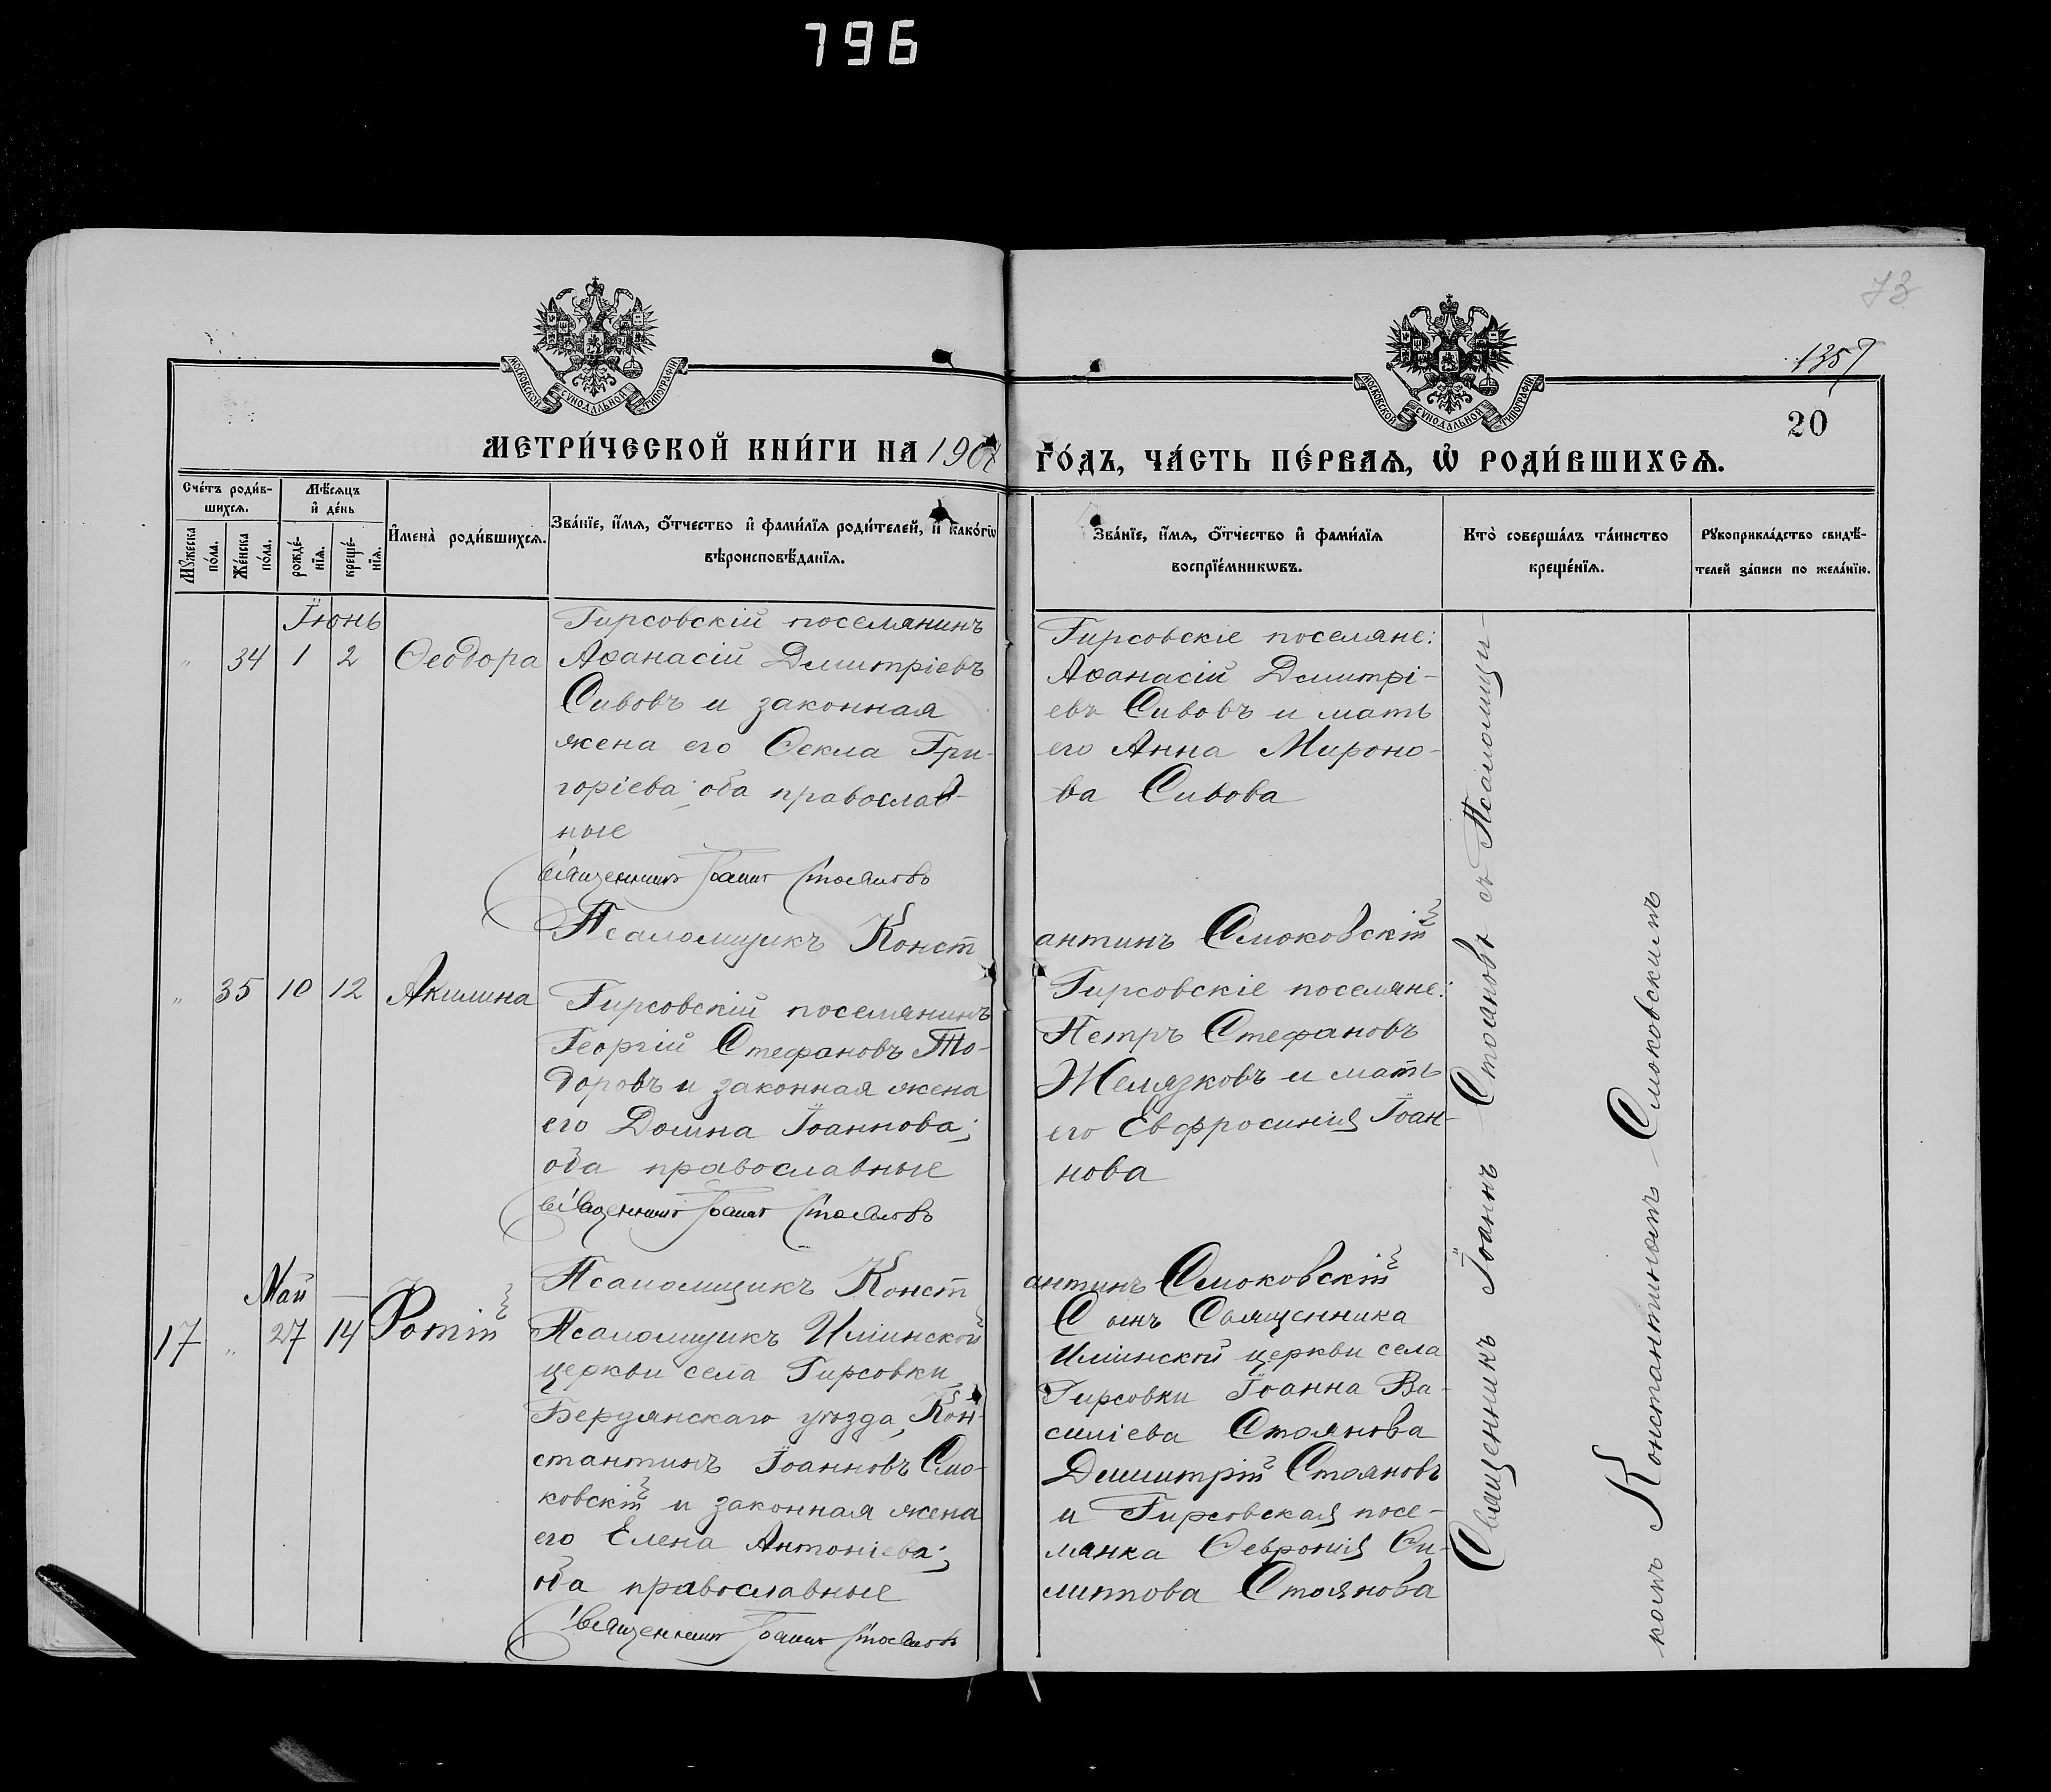 796
73
1357
МОСКОВСКОЙ СУНОДАЛЬНОЙ ТИПОГРАФІИ
МОСКОВСКОЙ СУНОДАЛЬНОЙ ТИПОГРАФІИ
20
МЕТРИ́ЧЕСКОЙ КНИ́ГИ НА 1907 ГО́ДЪ, ЧА́СТЬ ПЕ́РВАѦ, Ѡ҆ РОДИ́ВШИХСѦ.
Сче́тъ роди́в-
шихсѧ.
Мꙋжеска по́ла.
Же́нска по́ла.
Мѣ́сѧцъ
и҆ де́нь
рожде́-
нїѧ.
креще́-
нїѧ.
И҆мена̀ роди́вшихсѧ.
Зва́нїе, и҆́мѧ, ѻ҆́тчество и҆ фами́лїѧ роди́телей, и҆ како́гѡ
вѣроисповѣ́данїѧ.
Зва́нїе, и҆́мѧ, ѻ҆́тчество и҆ фами́лїѧ
воспрїе́мникѡвъ.
Кто̀ соверша́лъ та́инство
креще́нїѧ.
Рꙋкоприкла́дство свидѣ́-
телей за́писи по жела́нїю.
Іюнь
„ 34 1 2 Ѳеодора
Гирсовскій поселянинъ
Аѳанасій Дмитріевъ
Сивовъ и законная
жена его Ѳекла Гри-
горіева; оба православ-
ные
Священникъ Іоаннъ Стояновъ
Гирсовскіе поселяне:
Аѳанасій Димитрі-
евъ Сивовъ и мать
его Анна Мироно-
ва Сивова
Псаломщикъ Константинъ Смоковскій
„ 35 10 12 Акилина
Гирсовскій поселянинъ
Георгій Стефановъ То-
доровъ и законная жена
его Домна Іоаннова;
оба православные
Священникъ Іоаннъ Стояновъ
Гирсовскіе поселяне:
Петръ Стефановъ
Желязковъ и мать
его Евфросинія Іоан-
нова
Псаломщикъ Константинъ Смоковскій
Май
17 „ 27 14 Фотій
Псаломщикъ Иліинской
церкви села Гирсовки
Бердянскаго уѣзда, Кон-
стантинъ Іоанновъ Смо-
ковскій и законная жена
его Елена Антоніева;
оба православные
Священникъ Іоаннъ Стояновъ
Сынъ Священника
Иліинской церкви села
Гирсовки Іоанна Ва-
силіева Стоянова
Димитрій Стояновъ
и Гирсовская посе-
лянка Ѳевронія Фи-
липпова Стоянова
Священникъ Іоаннъ Стояновъ съ Псаломщи-
комъ Константиномъ Смоковскимъ